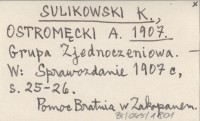 SULIKOWSKI K.,
OSTROMĘCKI A. 1907.
Grupa Zjednoczeniowa.
W: Sprawozdanie 1907 r.,
s. 25-26.
Pomoc Bratnia w Zakopanem.